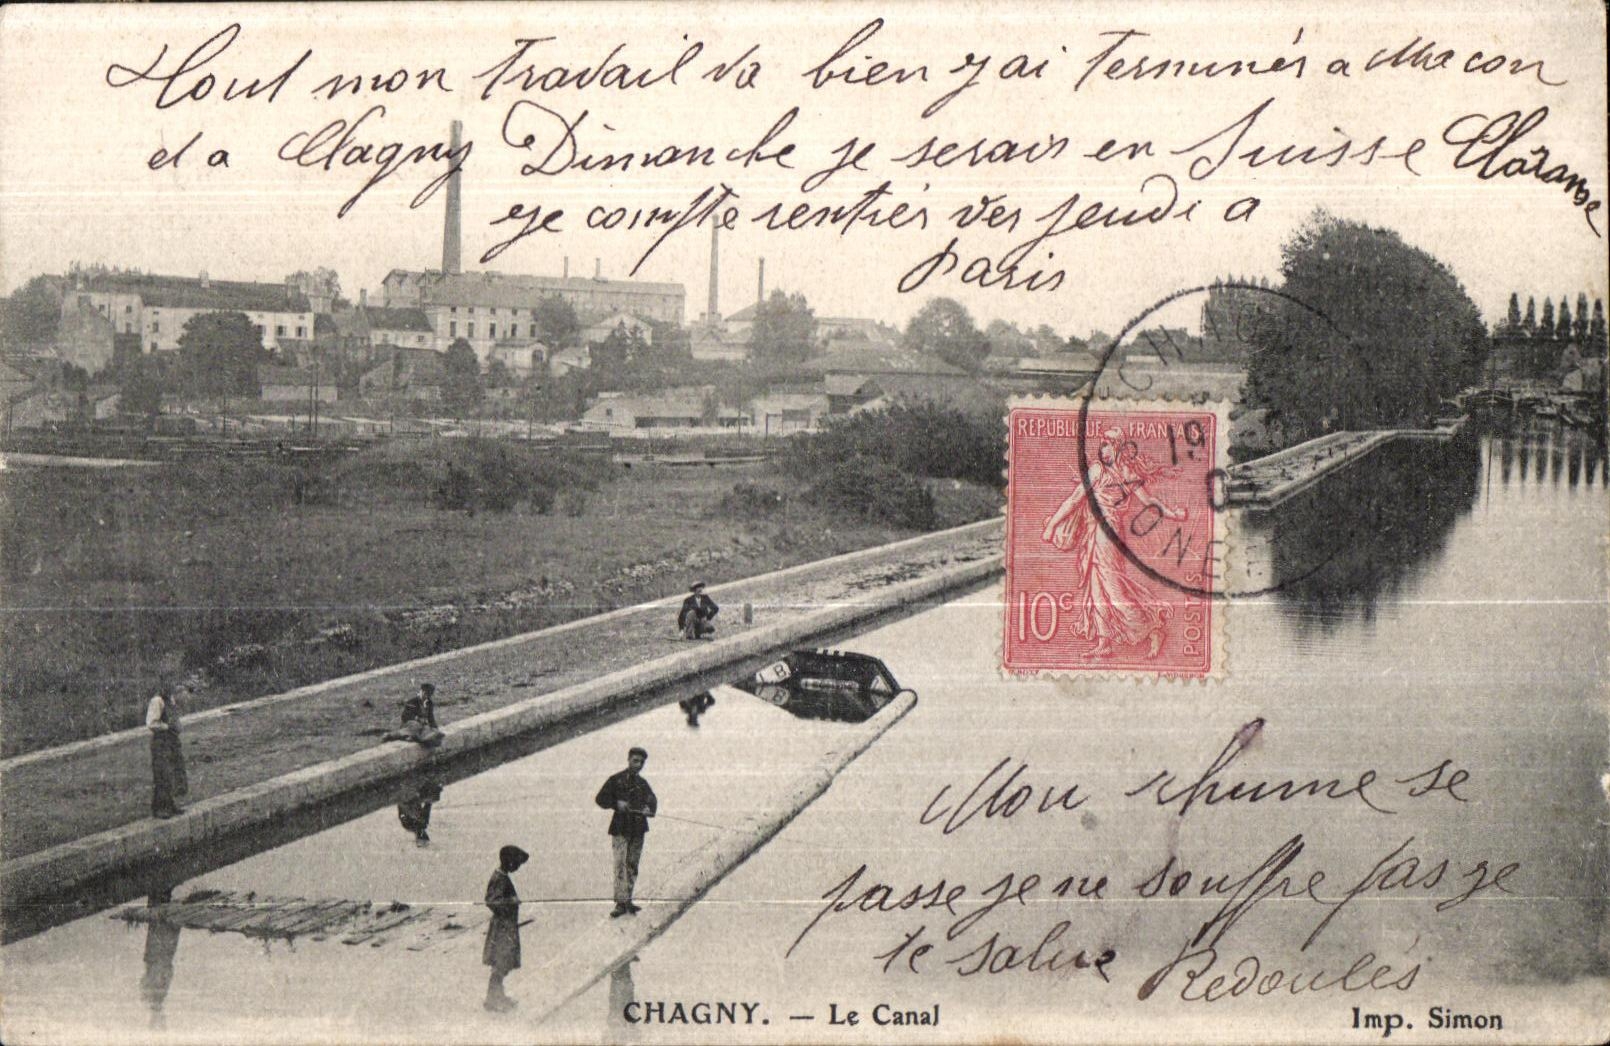 Tout mon travail va bien y ai terminés a Macon
et a Chagny Dimanche je serais en Suisse Clarance
eje compte rentrés ver jeudi a
Paris
CHAG
19
0
SAONE
REPUBLIQUE FRANCAISE
10c
POSTES
L.B.
Mon rhume se
passe je ne souffre pas je
te salue Redoulés
CHAGNY. — Le Canal
Imp. Simon